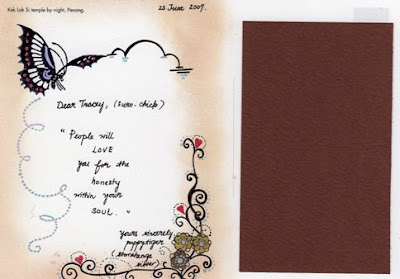 Kek Lok Si temple by night, Penang.
23 June 2007.
Dear Tracey, (euro-chick)
"People will
LOVE
you for the
honesty
within your
SOUL."
Yours sincerely
puppytiger
(stonehenge
sister)